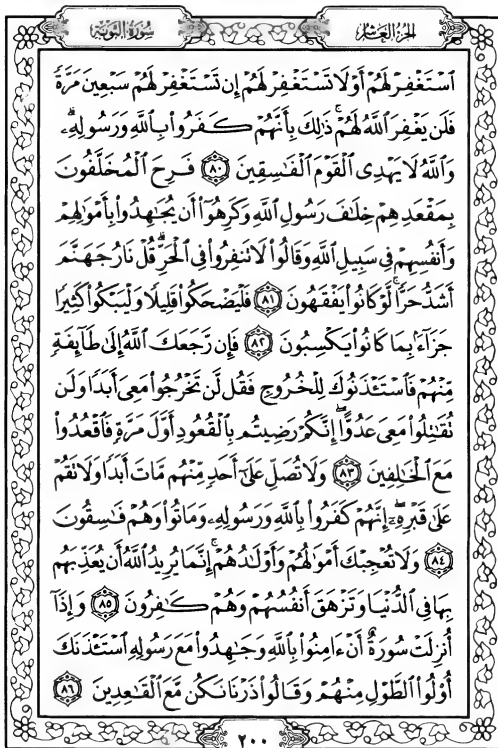 الجزء العاشر
سورة التوبة
ٱسْتَغْفِرْ لَهُمْ أَوْ لَا تَسْتَغْفِرْ لَهُمْ إِن تَسْتَغْفِرْ لَهُمْ سَبْعِينَ مَرَّةً
فَلَن يَغْفِرَ ٱللَّهُ لَهُمْ ۚ ذَٰلِكَ بِأَنَّهُمْ كَفَرُوا۟ بِٱللَّهِ وَرَسُولِهِۦ ۗ
وَٱللَّهُ لَا يَهْدِى ٱلْقَوْمَ ٱلْفَـٰسِقِينَ ٨٠ فَرِحَ ٱلْمُخَلَّفُونَ
بِمَقْعَدِهِمْ خِلَـٰفَ رَسُولِ ٱللَّهِ وَكَرِهُوٓا۟ أَن يُجَـٰهِدُوا۟ بِأَمْوَٰلِهِمْ
وَأَنفُسِهِمْ فِى سَبِيلِ ٱللَّهِ وَقَالُوا۟ لَا تَنفِرُوا۟ فِى ٱلْحَرِّ ۗ قُلْ نَارُ جَهَنَّمَ
أَشَدُّ حَرًّا ۚ لَّوْ كَانُوا۟ يَفْقَهُونَ ٨١ فَلْيَضْحَكُوا۟ قَلِيلًا وَلْيَبْكُوا۟ كَثِيرًا
جَزَآءًۢ بِمَا كَانُوا۟ يَكْسِبُونَ ٨٢ فَإِن رَّجَعَكَ ٱللَّهُ إِلَىٰ طَآئِفَةٍ
مِّنْهُمْ فَٱسْتَـْٔذَنُوكَ لِلْخُرُوجِ فَقُل لَّن تَخْرُجُوا۟ مَعِىَ أَبَدًا وَلَن
تُقَـٰتِلُوا۟ مَعِىَ عَدُوًّا ۖ إِنَّكُمْ رَضِيتُم بِٱلْقُعُودِ أَوَّلَ مَرَّةٍ فَٱقْعُدُوا۟
مَعَ ٱلْخَـٰلِفِينَ ٨٣ وَلَا تُصَلِّ عَلَىٰٓ أَحَدٍ مِّنْهُم مَّاتَ أَبَدًا وَلَا تَقُمْ
عَلَىٰ قَبْرِهِۦٓ ۖ إِنَّهُمْ كَفَرُوا۟ بِٱللَّهِ وَرَسُولِهِۦ وَمَاتُوا۟ وَهُمْ فَـٰسِقُونَ
٨٤ وَلَا تُعْجِبْكَ أَمْوَٰلُهُمْ وَأَوْلَـٰدُهُمْ ۚ إِنَّمَا يُرِيدُ ٱللَّهُ أَن يُعَذِّبَهُم
بِهَا فِى ٱلدُّنْيَا وَتَزْهَقَ أَنفُسُهُمْ وَهُمْ كَـٰفِرُونَ ٨٥ وَإِذَآ
أُنزِلَتْ سُورَةٌ أَنْ ءَامِنُوا۟ بِٱللَّهِ وَجَـٰهِدُوا۟ مَعَ رَسُولِهِ ٱسْتَـْٔذَنَكَ
أُو۟لُوا۟ ٱلطَّوْلِ مِنْهُمْ وَقَالُوا۟ ذَرْنَا نَكُن مَّعَ ٱلْقَـٰعِدِينَ ٨٦
٢٠٠